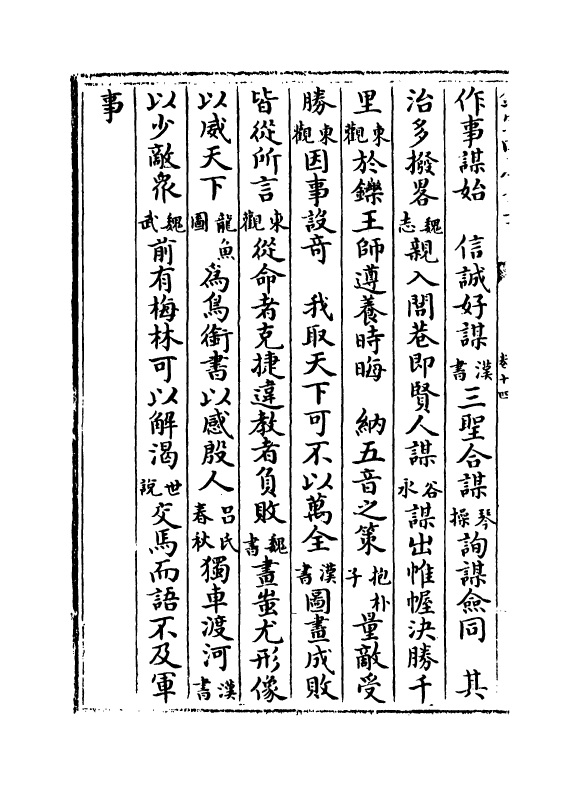 作事謀始　信誠好謀漢書三聖合謀琴操詢謀僉同　其
治多撥畧魏志親入閭巷即賢人謀谷永謀出帷幄決勝千
里東觀於鑠王師遵養時晦　納五音之策抱朴子量敵受
勝東觀因事設奇　我取天下可不以萬全漢書圖畫成敗
皆從所言東觀從命者克捷違教者負敗魏書畫蚩尤形像
以威天下龍魚圖為鳥銜書以感殷人吕氏春秋獨車渡河漢書
以少敵衆魏武前有梅林可以解渴世説交馬而語不及軍
事
卷十四